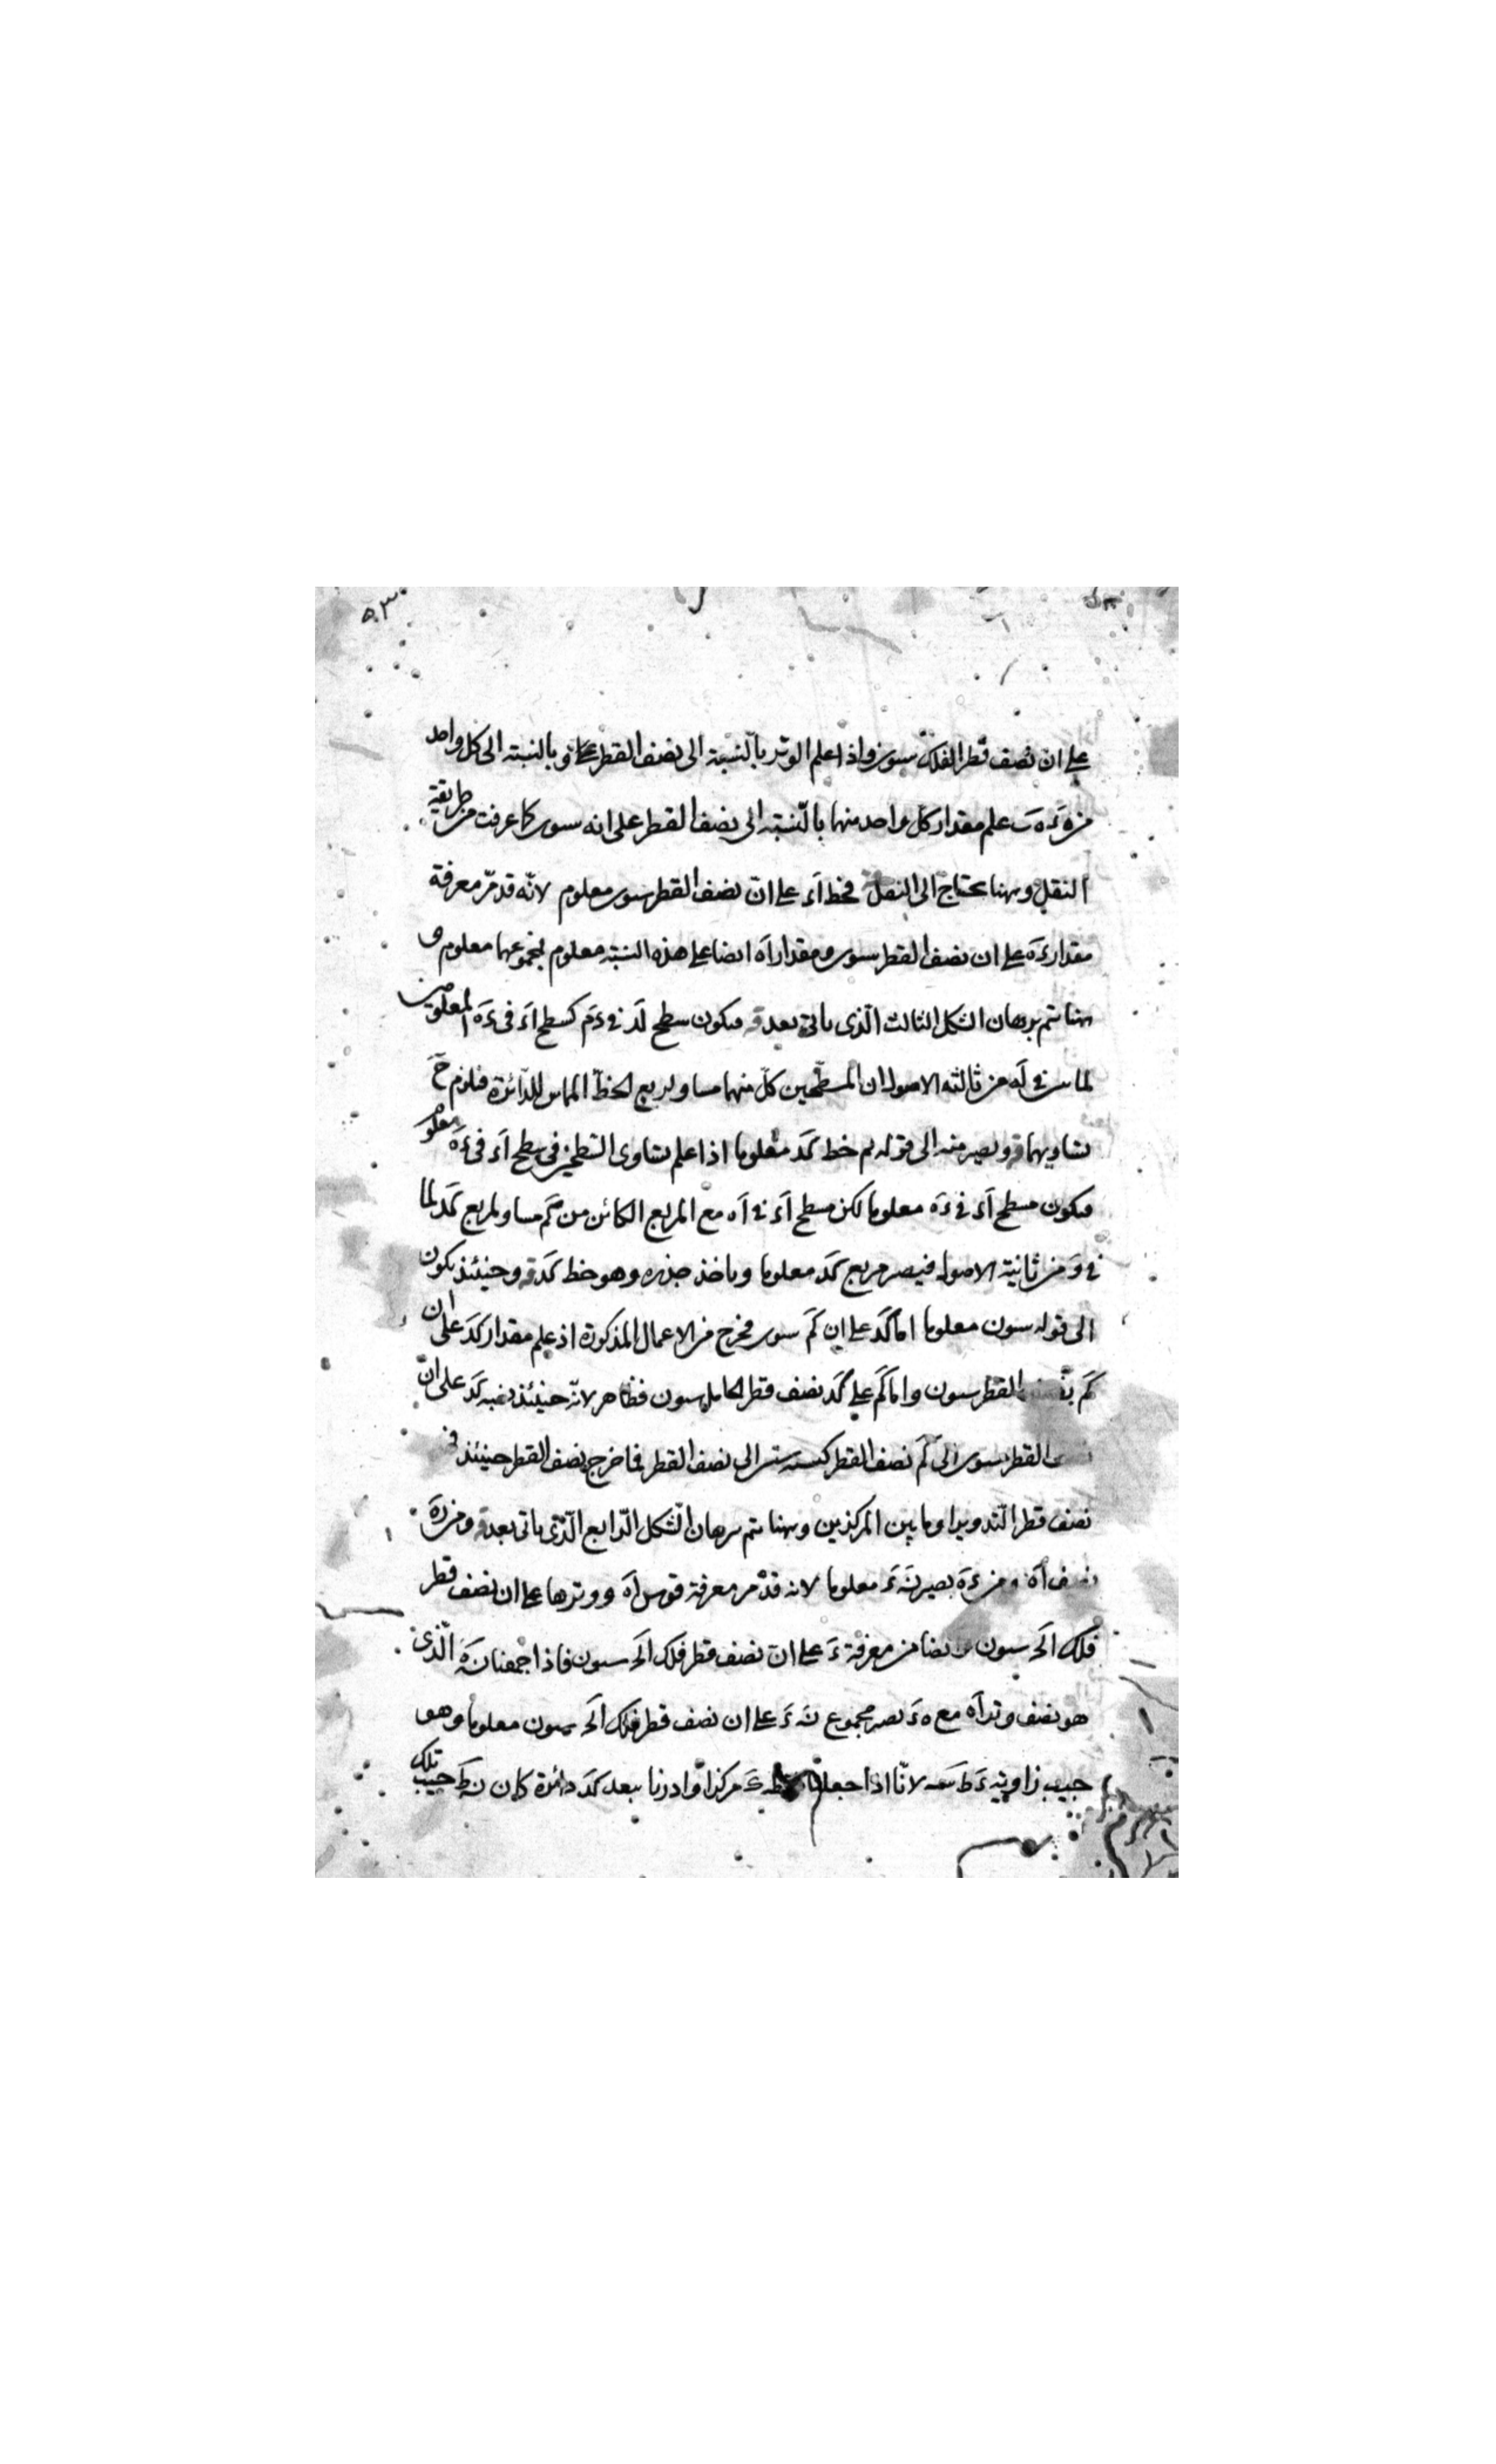 ٥٣
على ان نصف قطر الفلك ستون واذا علم الوتر بالنسبة الى نصف القطر علم وبالنسبة الى كل واحد
من ءه ب علم مقدار كل واحد منهما بالنسبة الى نصف القطر على انه ستون كما عرفت من طريقة
النقل وههنا يحتاج الى النقل فخط اء على ان نصف القطر ستون معلوم لانه قد مر معرفة
مقدار ءه على ان نصف القطر ستون ومقدار اه ايضا على هذه النسبة معلوم فمجموعهما معلوم و
ههنا يتم برهان الشكل الثالث الذى ياتى بعد قه فيكون سطح لد فى دم كسطح اء فى ءه المعلومين
لما مر فى له من ثالثة الاصول ان المسطحين كل منهما مساو لمربع الخط المماس للدائرة فلزم ح
تساويهما قه ويصير منه الى قوله ثم خط كد معلوما اذا علم تساوى السطحين فى سطح اء فى ءه معلوم
فيكون مسطح اء فى ءه معلوما لكن مسطح اء فى اه مع المربع الكائن من كم مساو لمربع كد لما
فى و من ثانية الاصول فيصير مربع كد معلوما وياخذ جذره وهو خط كد قه وحينئذ يكون
الى قوله ستون معلوما اما كد على ان كم ستون فخرج من الاعمال المذكورة اذ علم مقدار كد على ان
كم القطر ستون واما كم على كد نصف قطر الحامل ستون فظاهر لانه حينئذ نسبة كد على ان
القطر ستون الى كم نصف القطر كنسبة ستين الى نصف القطر فما خرج نصف القطر حينئذ فى
نصف قطر التدوير او ما بين المركزين وههنا يتم برهان الشكل الرابع الذى ياتى بعد قه ومن ره
نصف اه ومن ءه يصير نه ء معلوما لانه قد مر معرفة قوس اه ووترها على ان نصف قطر
فلك الح ستون وايضا من معرفة ء على ان نصف قطر فلك الح ستون فاذا جمعنا نه الذى
هو نصف وتر اه مع ه ء يصير مجموع نه ء على ان نصف قطر فلك الح ستون معلوما وهو
جيب زاوية ء ط لانا اذا جعلنا نقطة ء مركزا وادرنا ببعد كد دائرة كان نط جيب تلك